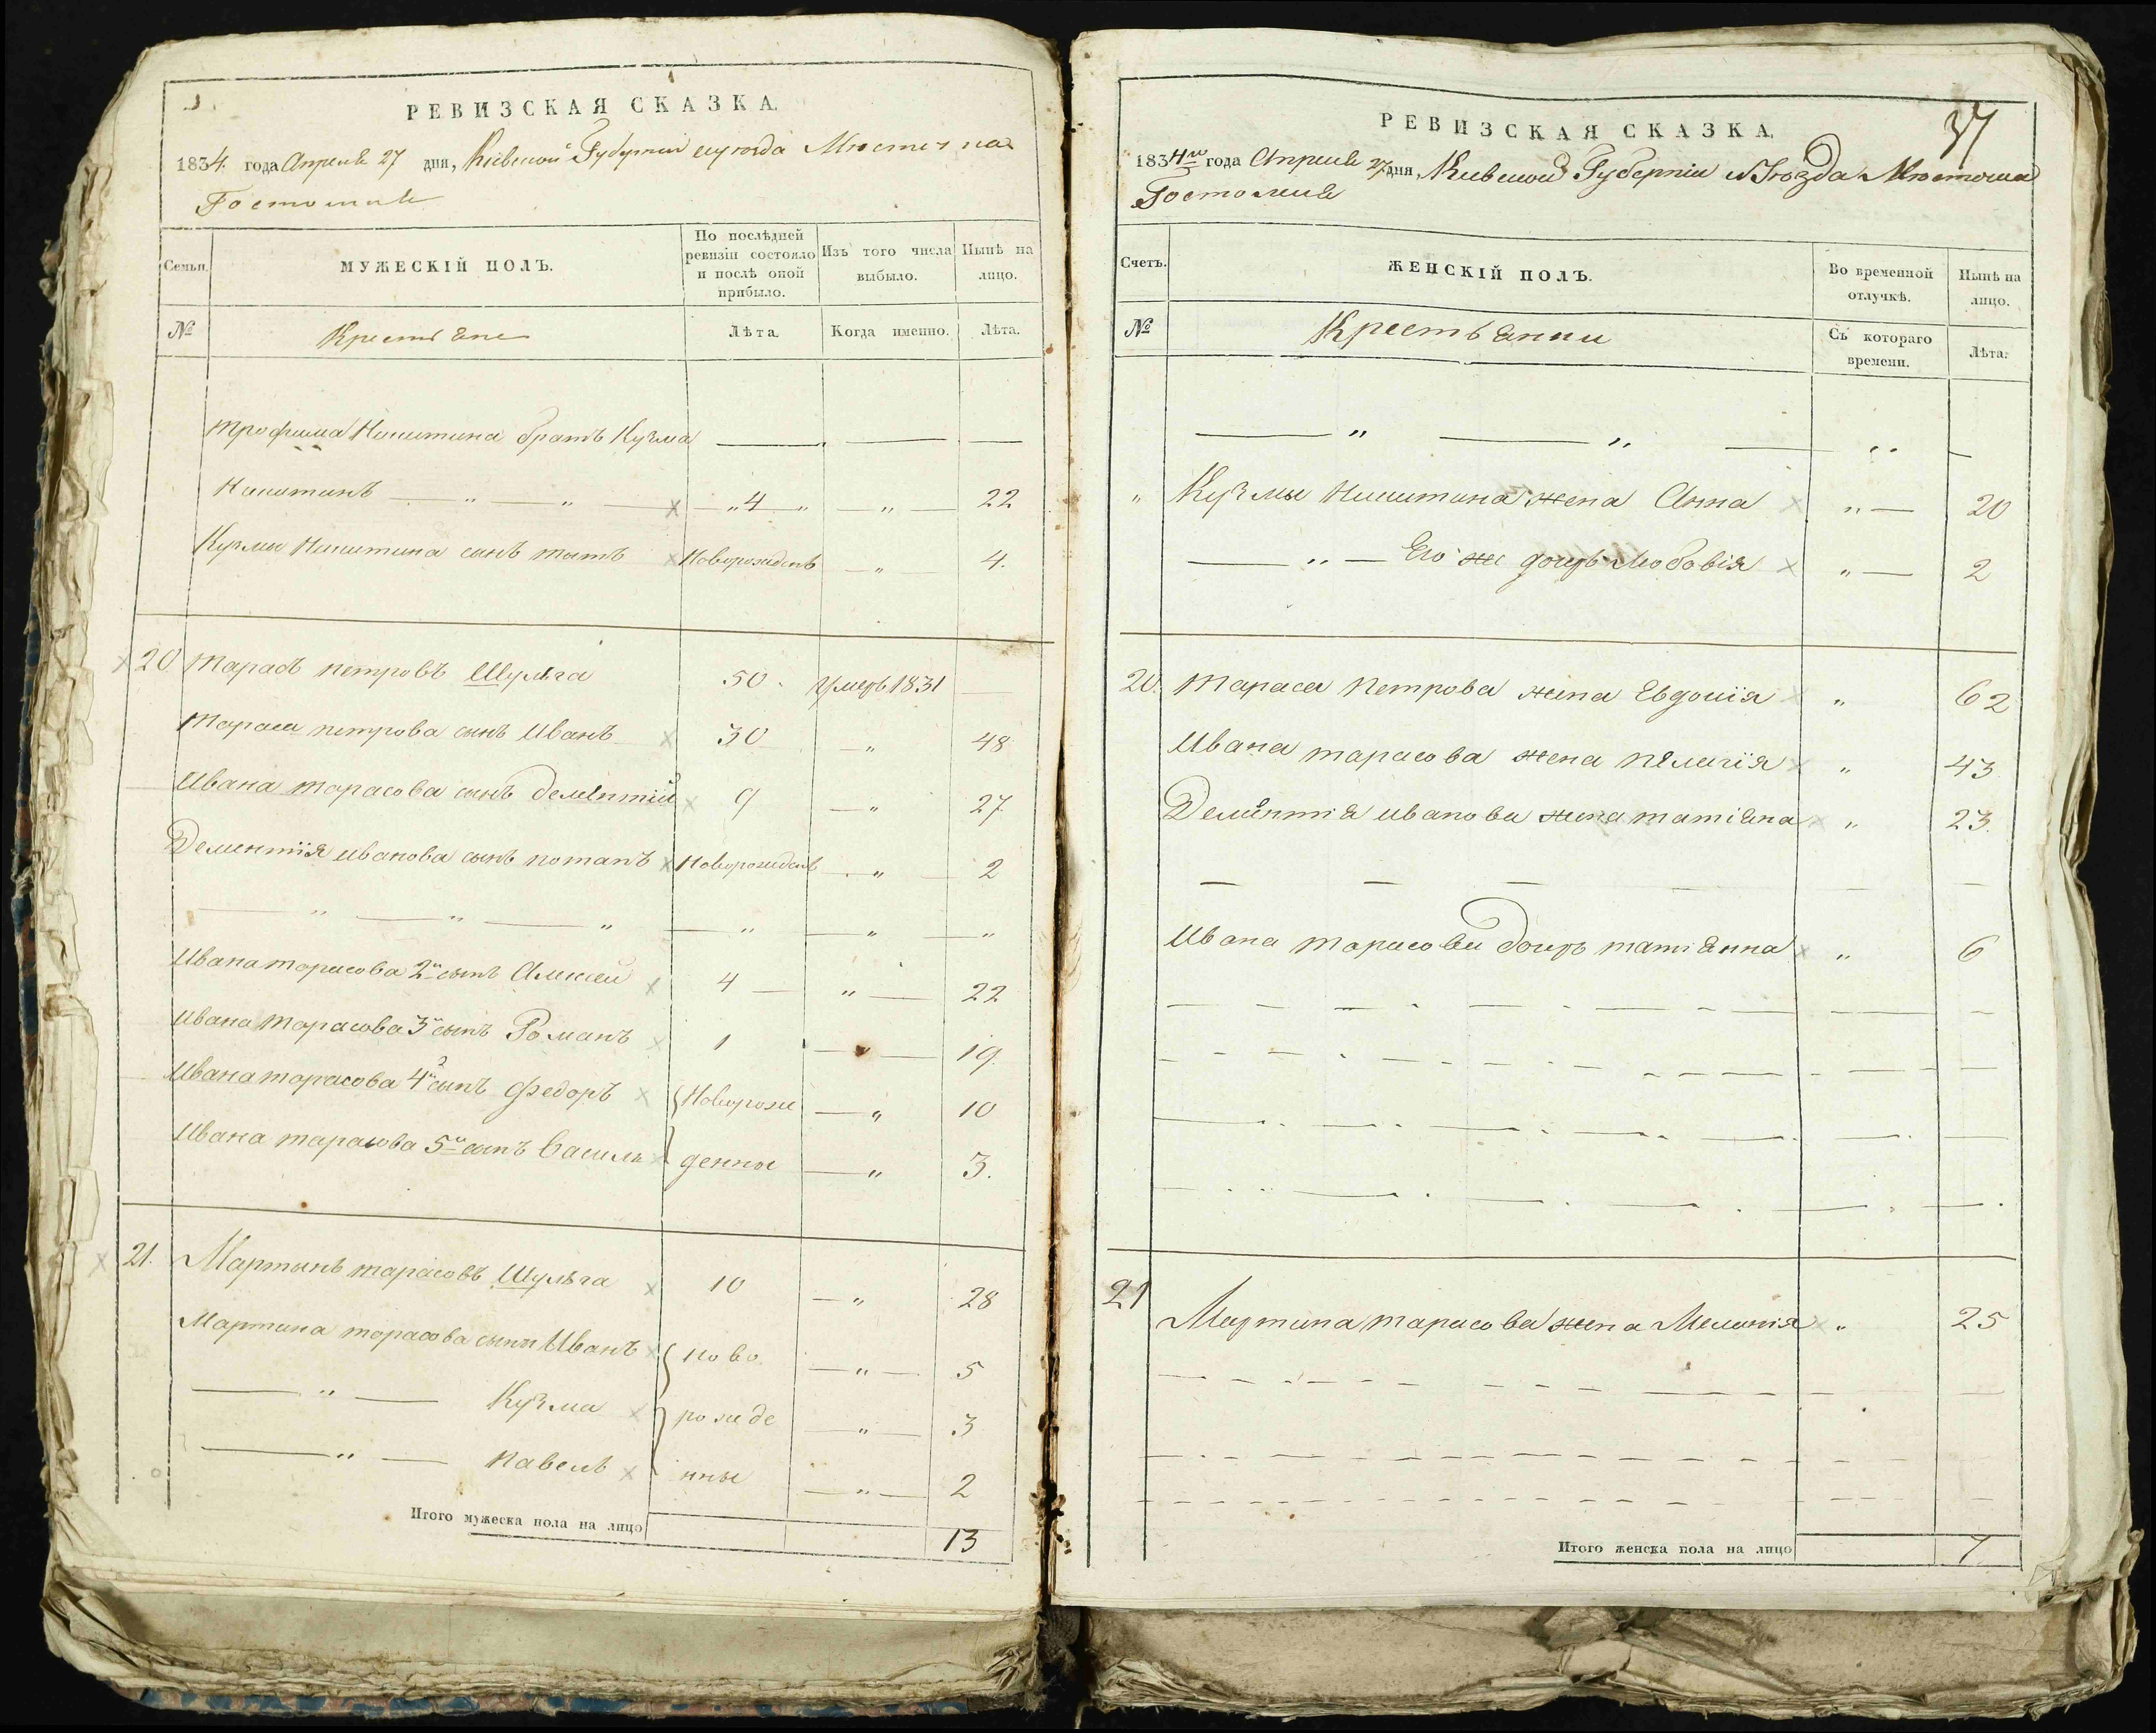 РЕВИЗСКАЯ СКАЗКА.
1834. года Апреля 27 дня, Кіевской Губерніи и уезда Местечка
Гостомля
Семьи.
МУЖЕСКІЙ ПОЛЪ.
По послѣдней
ревизіи состояло
и послѣ оной
прибыло.
Изъ того числа
выбыло.
Нынѣ на
лицо.
№
Крестьяне
Лѣта.
Когда именно.
Лѣта.
трофима Никитина братъ Кузма
Никитинъ 4 22
Кузмы Никитина сынъ титъ Новорожденъ 4.
20 Тарасъ петровъ Шульга 50. Умеръ 1831
Тараса петрова сынъ Иванъ 30 48
Ивана тарасова сынъ дементий 9 27
Дементїя иванова сынъ потапъ Новорожденъ 2
Ивана тарасова 2й сынъ Алексей 4 22
Ивана тарасова 3й сынъ Романъ 1 19.
Ивана тарасова 4й сынъ Федоръ Новорож 10
Ивана тарасова 5й сынъ Василь денны 3.
21. Мартынъ тарасовъ Шульга 10 28
Мартина тарасова сыни Иванъ ново 5
Кузма рожде 3
павелъ нны 2
Итого мужеска пола на лицо 13
37
РЕВИЗСКАЯ СКАЗКА.
1834го года Апреля 27 дня, Киевской Губерніи и Уезда Местечка
Гостомля
Счетъ.
ЖЕНСКІЙ ПОЛЪ.
Во временной
отлучкѣ.
Нынѣ на
лицо.
№
Крестьянки
Съ котораго
времени.
Лѣта.
Кузмы Никитина жена Анна 20
Его же дочерь Любовія 2
20. Тараса Петрова жена Евдокїя 62
Ивана тарасова жена пелагїя 43
Дементія иванова жена татіяна 23.
Ивана тарасова дочерь татіянна 6
21
Мартина тарасова жена Меланія 25
Итого женска пола на лицо 7